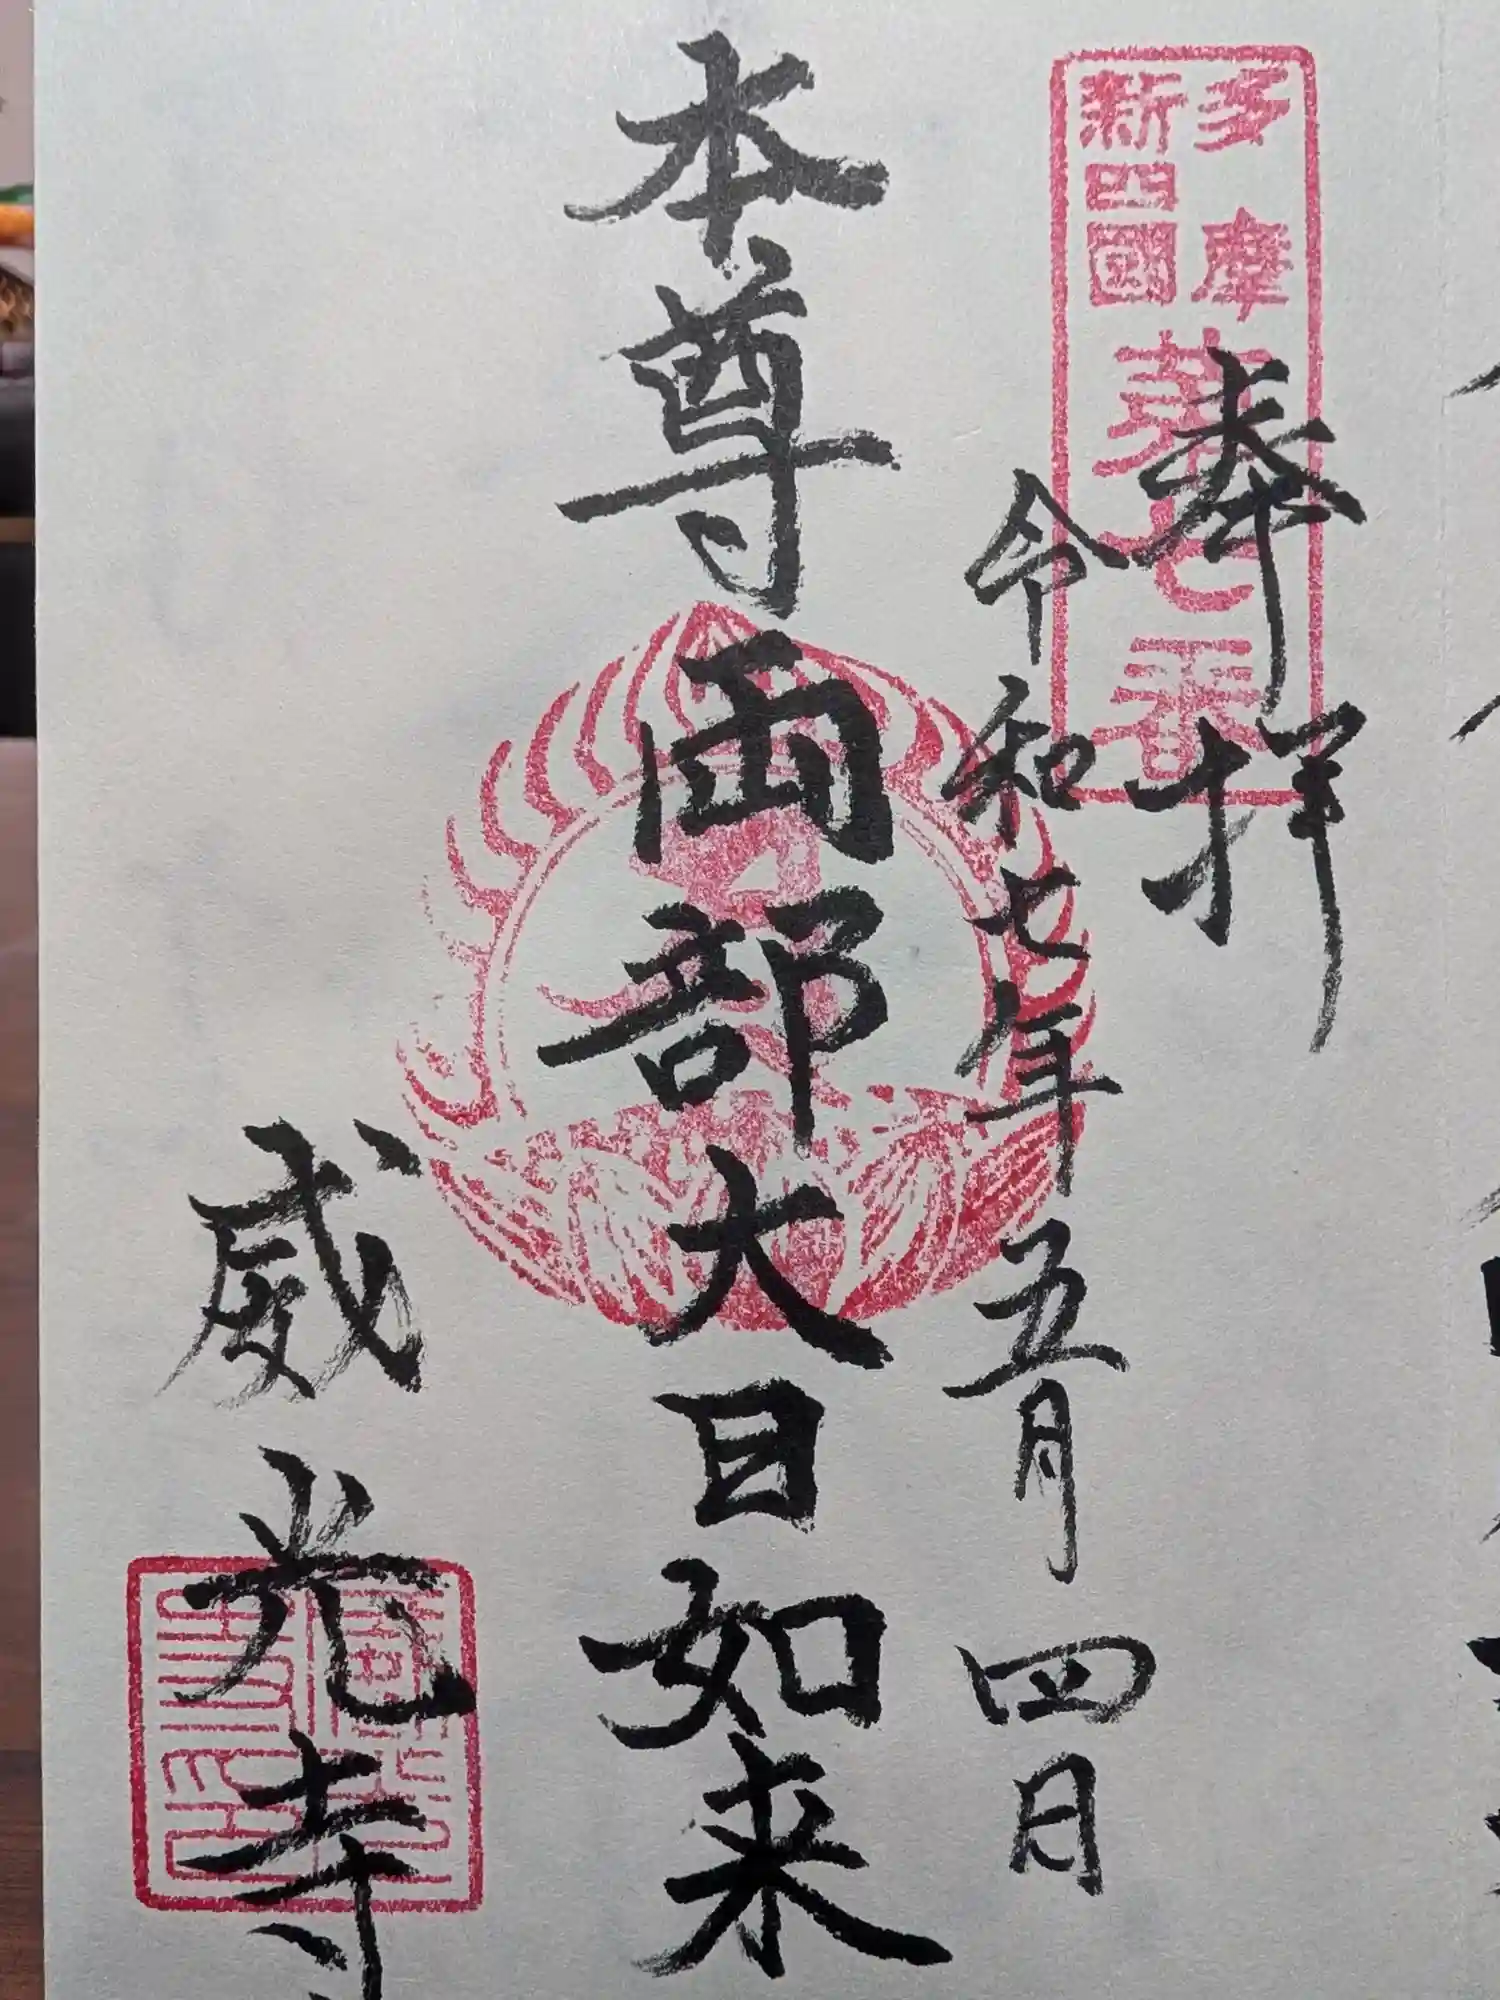 多摩
新四国
第七番
奉拝
令和七年五月四日
本尊両部大日如来
威光寺